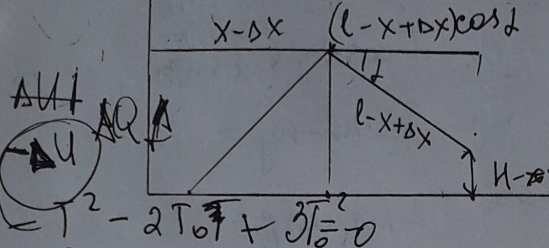 x-Δx (l-x+Δx)cosα
α
l-x+Δx
ΔU
ΔQ A
-ΔU
H-
T² - 2T₀T + 3T₀² = 0